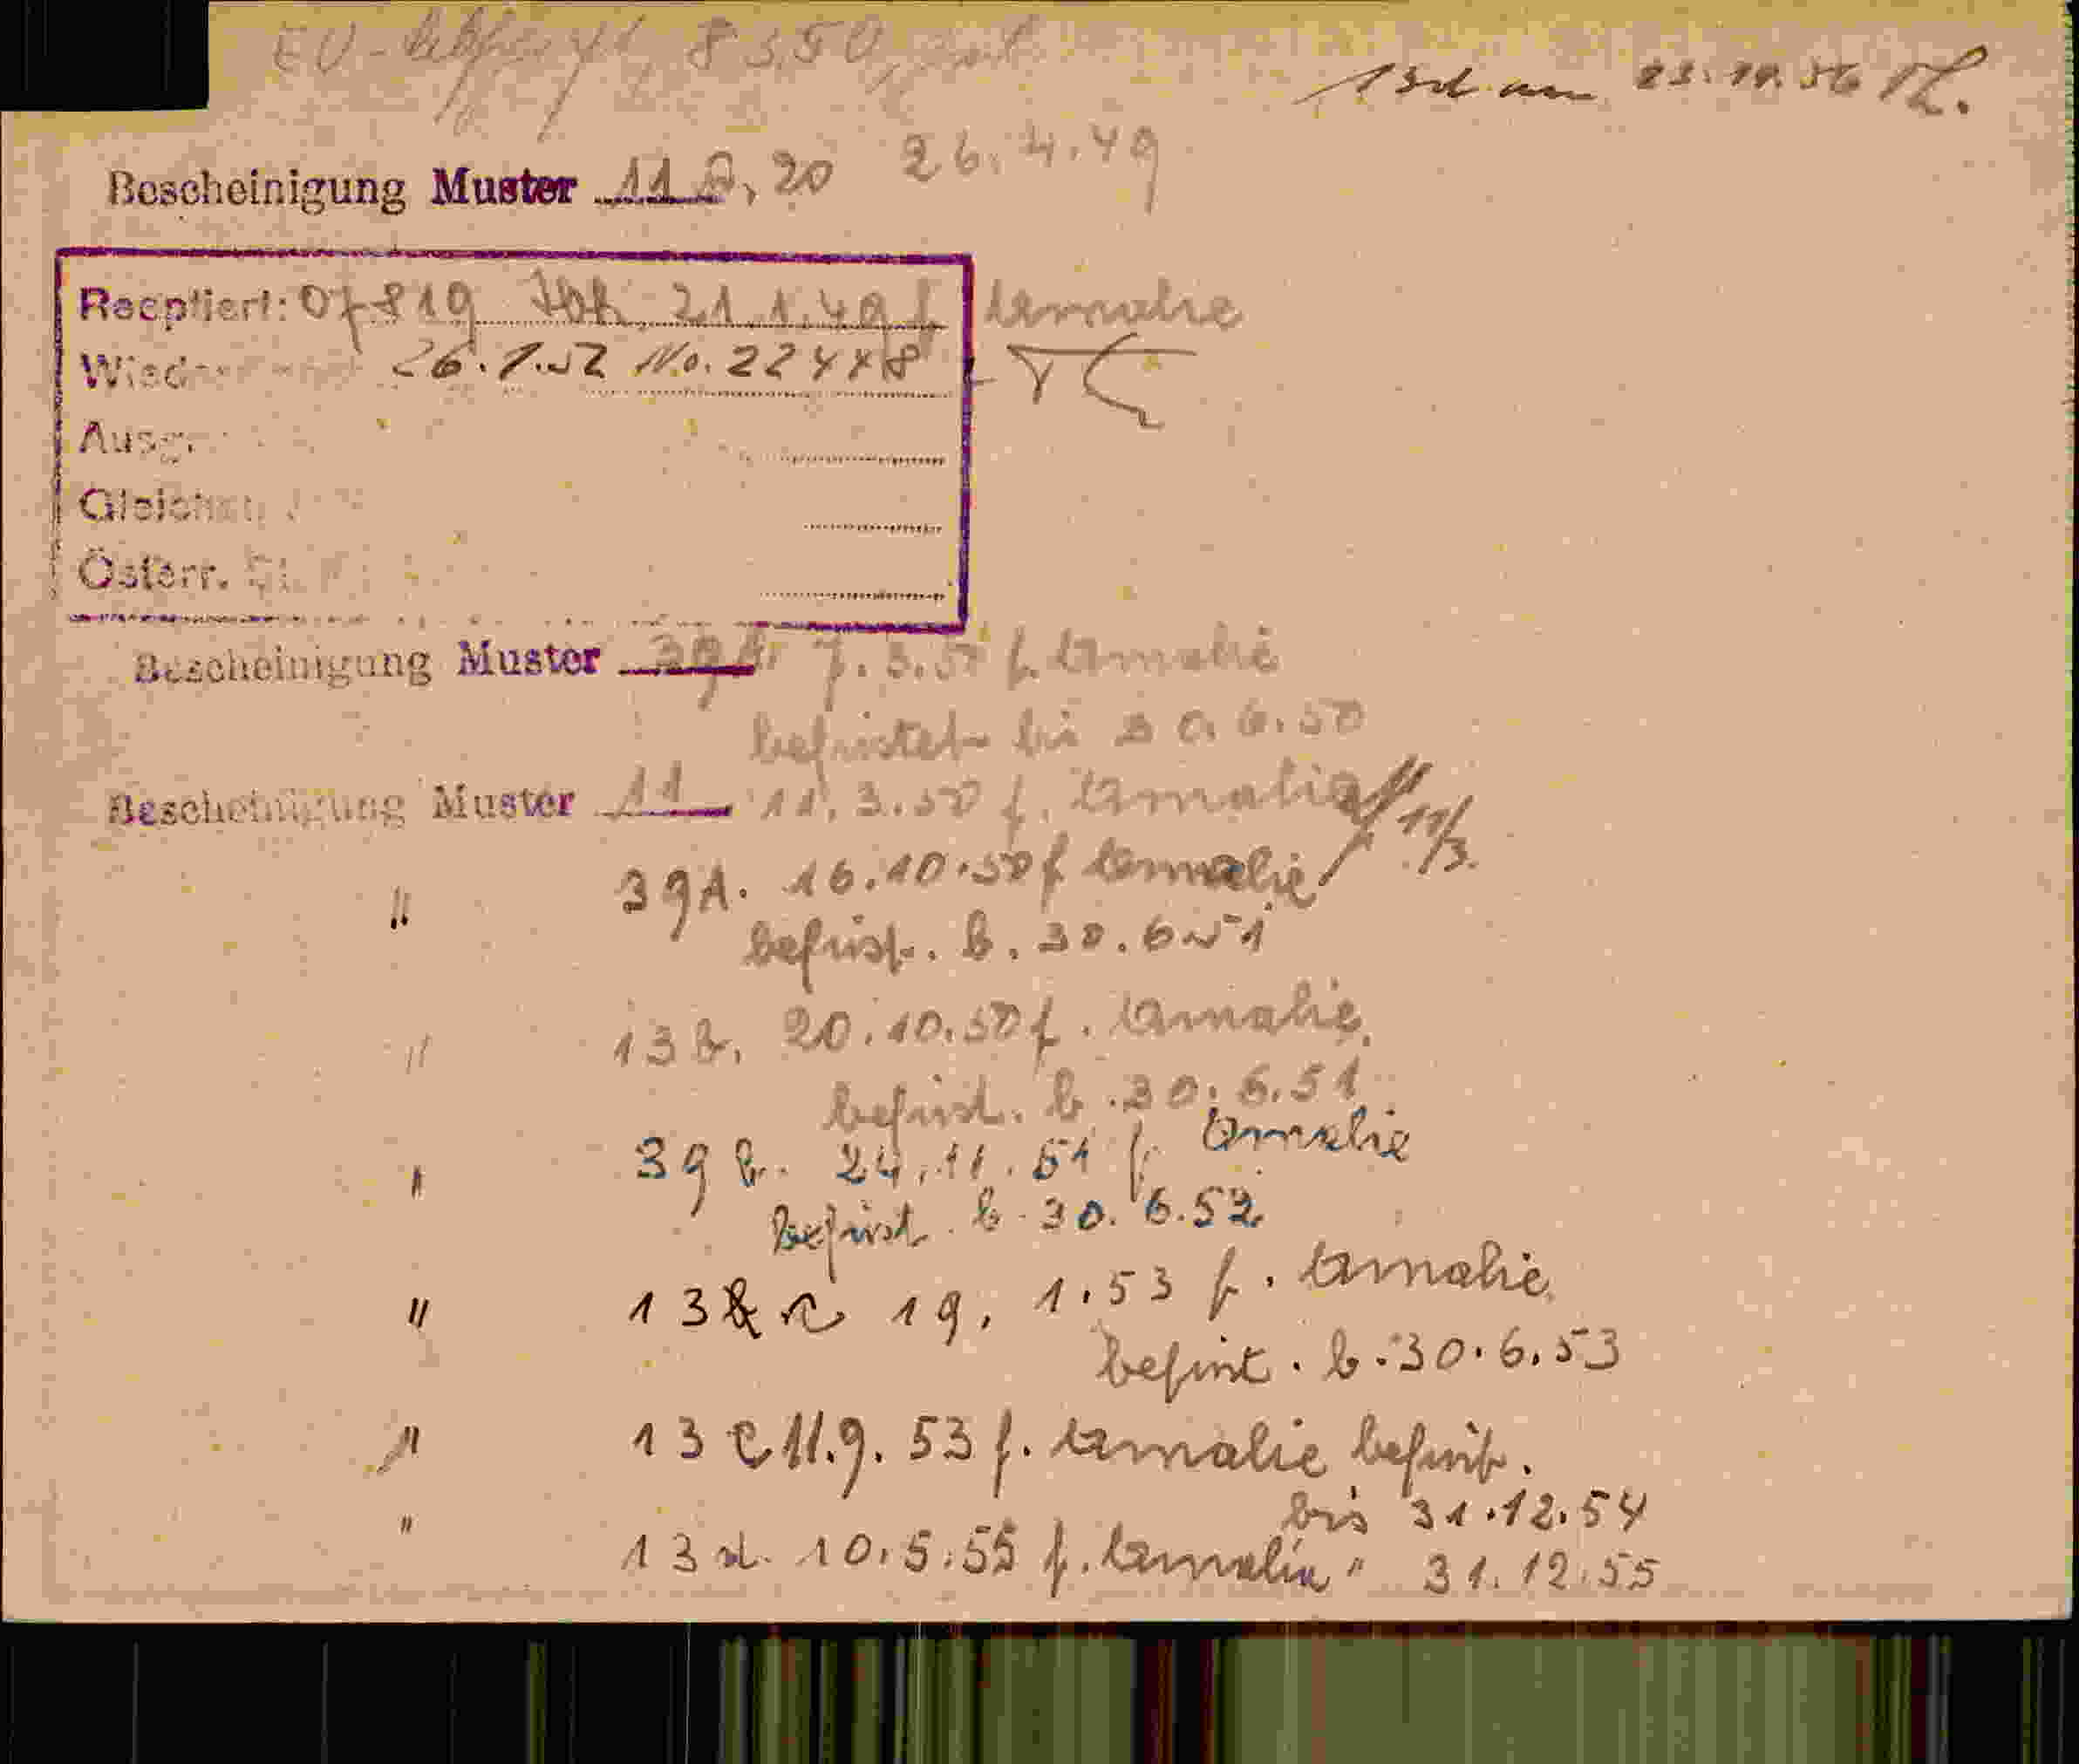 EU- 8350,
13d am 23.10.56
Bescheinigung Muster 11 a, 20 26.4.49
Reeptiert: 07819 21.1.49 f. Amalie
26.1.52 No. 22448
Österr.
Bescheinigung Muster 39A 7.3.50 f. Amalie
befristet bis 30.6.50
Bescheinigung Muster 11 11.3.50 f. Amalie 11/3.
" 39A. 16.10.50 f Amalie
befrist. b. 30.6.51
" 13b. 20.10.50 f. Amalie
befrist. b. 30.6.51
" 39b. 24.11.51 f. Amalie
befrist. b. 30.6.52
" 13 19.1.53 f. Amalie
befrist. b. 30.6.53
" 13c 11.9.53 f. Amalie befrist.
bis 31.12.54
" 13d. 10.5.55 f. Amalia " 31.12.55